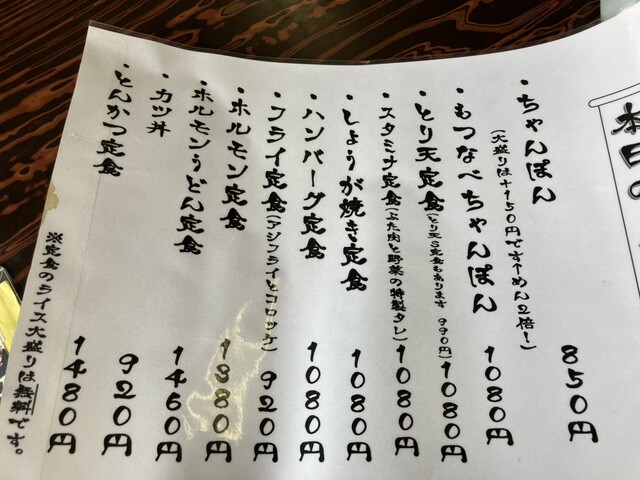 本日の
・ちゃんぽん 850円
(大盛りは+150円です↑めん2倍!)
・もつなべちゃんぽん 1080円
・とり天定食(とり天S定食もあります 990円) 1080円
・スタミナ定食(ぶた肉と野菜の特製タレ) 1080円
・しょうが焼き定食 1080円
・ハンバーグ定食 1080円
・フライ定食(アジフライとコロッケ) 920円
・ホルモン定食 1380円
・ホルモンうどん定食 1460円
・カツ丼 920円
・とんかつ定食 1480円
※定食のライス大盛りは無料です。